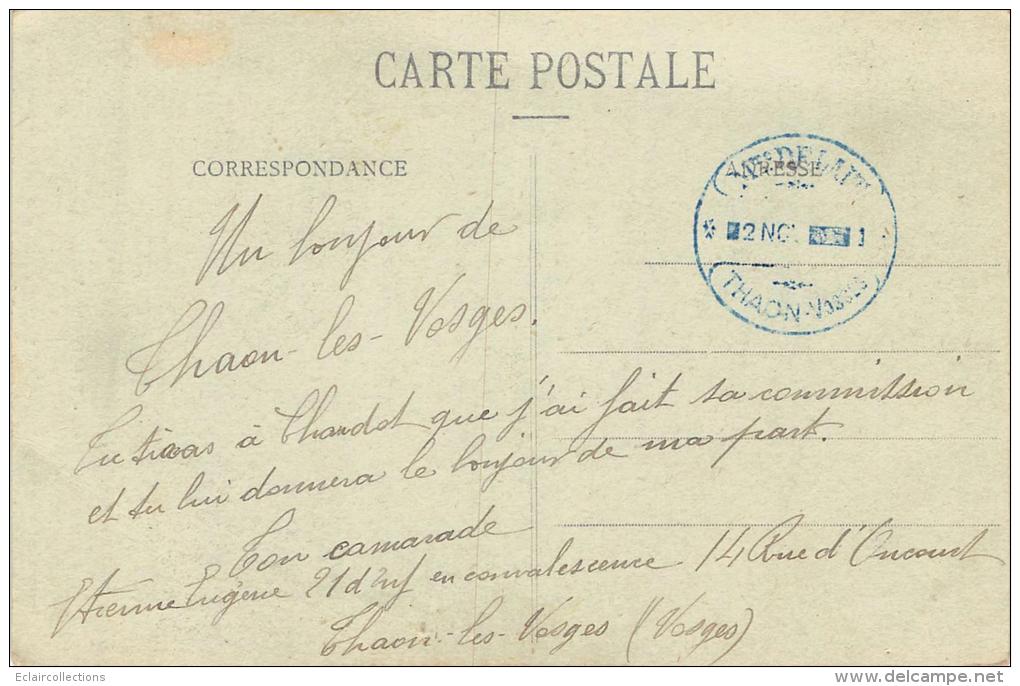 CARTE POSTALE
CORRESPONDANCE
ADRESSE
DELAIT
2 NOV 1
THAON-VOSGES
Un bonjour de
Thaon-les-Vosges.
Tu diras à Chardot que j'ai fait sa commission
et tu lui donnera le bonjour de ma part.
Ton camarade
Etienne Eugène 21 d'Inf en convalescence 14 Rue d'Oncourt
Thaon-les-Vosges (Vosges)
Eclaircollections
www.delcampe.net